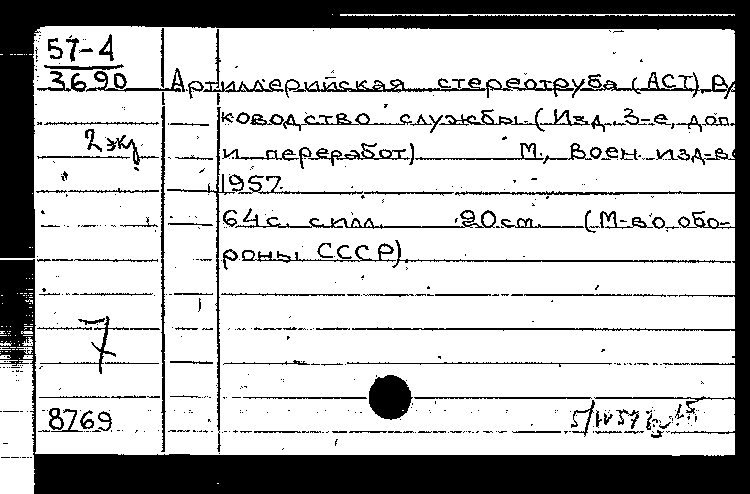 57-4
3690
Артиллерийская стереотруба (АСТ). Ру
ководство службы. (Изд. 3-е, доп.
2 экз
и переработ) М., Воен. изд-во
1957.
64 с. с илл. 20 см. (М-во обо-
роны СССР).
7
8769